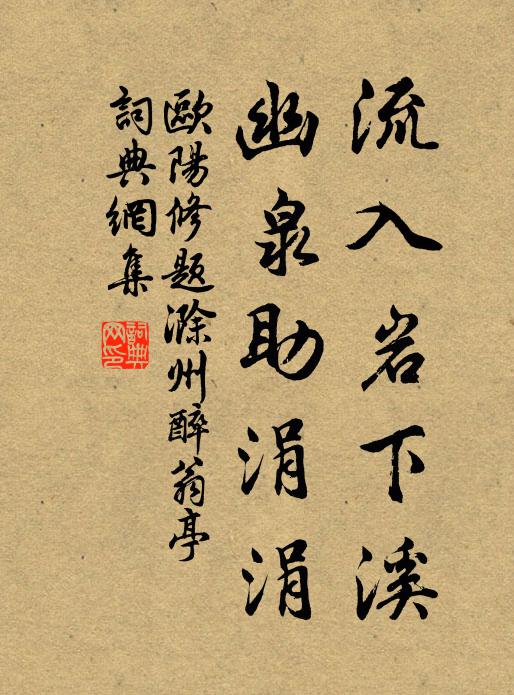 流入岩下溪
幽泉助涓涓
歐陽修題滁州醉翁亭
詞典網集
詞典
网印